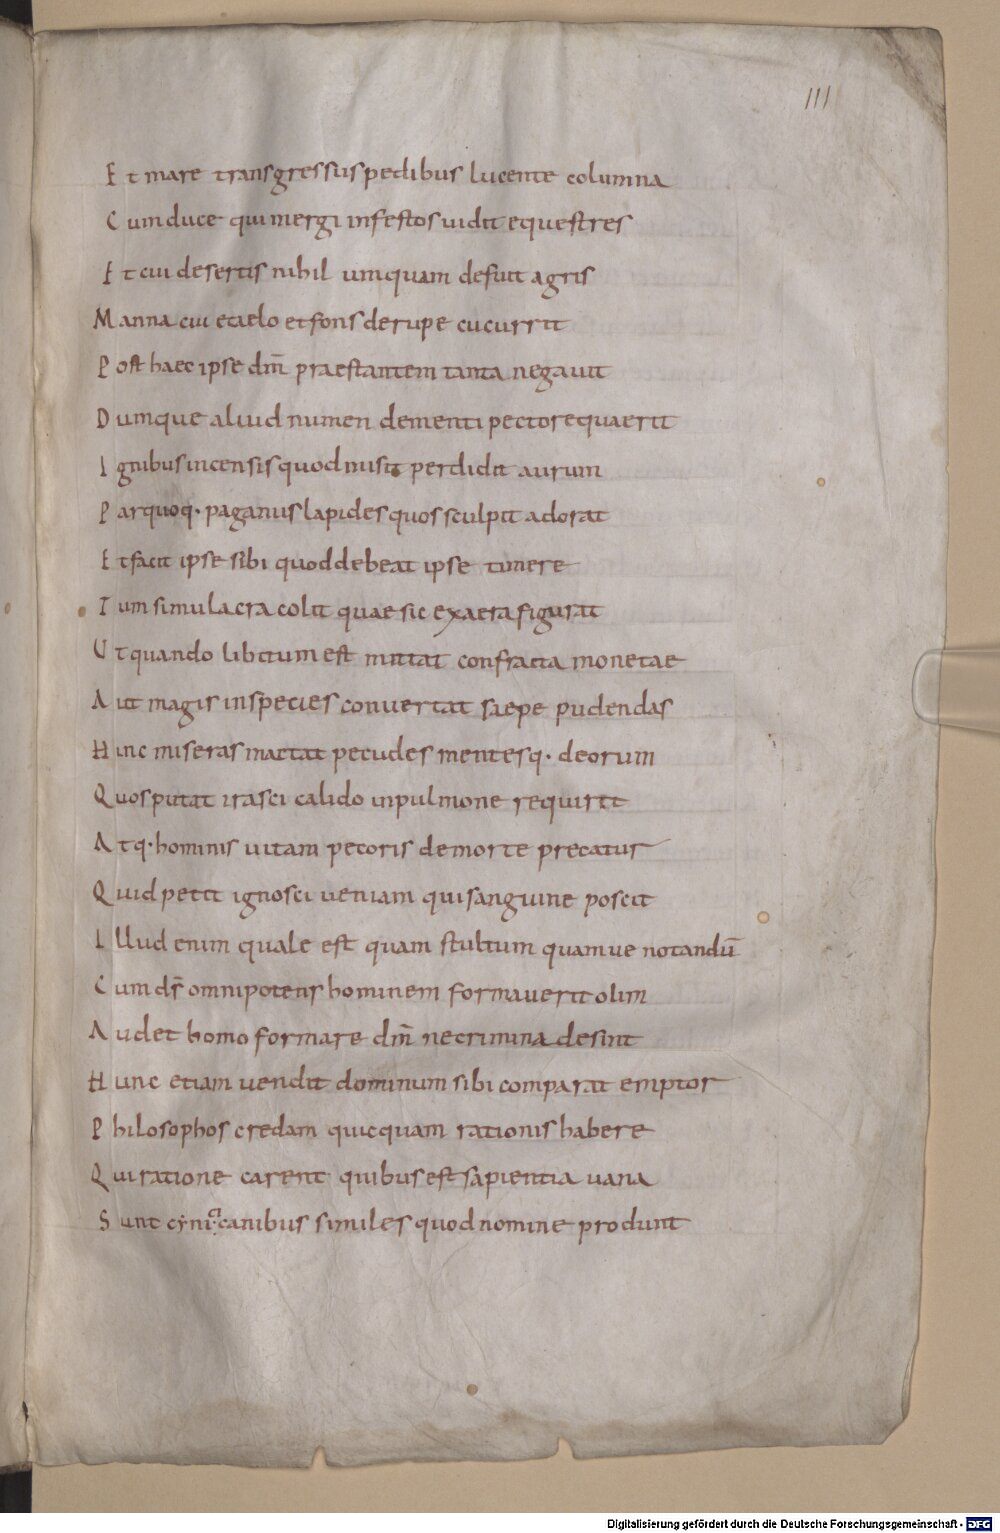 111
Et mare transgressus pedibus lucente columna
Cum duce qui mergi infestos uidit equestres
Et cui desertis nihil umquam defuit agris
Manna cui e caelo et fons de rupe cucurrit
Post haec ipse dm̄ praestantem tanta negauit
Dumque aliud numen dementi pectore quaerit
Ignibus incensis quod misit perdidit aurum
Par quoq· paganus lapides quos sculpit adorat
Et facit ipse sibi quod debeat ipse timere
Tum simulacra colit quae sic ex aera figurat
Ut quando libitum est mittat confracta monetae
Aut magis in species conuertat saepe pudendas
Hinc miseras mactat pecudes mentesq· deorum
Quos putat irasci calido in pulmone requirit
Atq· hominis uitam pecoris de morte precatur
Quid petit ignosci ueniam qui sanguine poscit
Illud enim quale est quam stultum quamue notandū
Cum ds̄ omnipotens hominem formauerit olim
Audet homo formare dm̄ ne crimina desint
Hunc etiam uendit dominum sibi comparat emptor
Philosophos credam quicquam rationis habere
Qui ratione carent quibus est sapientia uana
Sunt cyni canibus similes quod nomine produnt
Digitalisierung gefördert durch die Deutsche Forschungsgemeinschaft - DFG